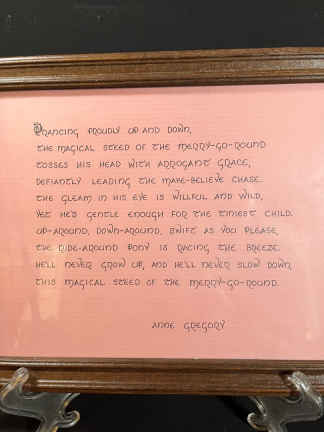 Prancing proudly up and down,
the magical steed of the merry-go-round
tosses his head with arrogant grace,
defiantly leading the make-believe chase.
The gleam in his eye is willful and wild,
yet he's gentle enough for the tiniest child.
Up-around, down-around, swift as you please,
the ride-around pony is racing the breeze.
He'll never grow up, and he'll never slow down
this magical steed of the merry-go-round.
Anne Gregory